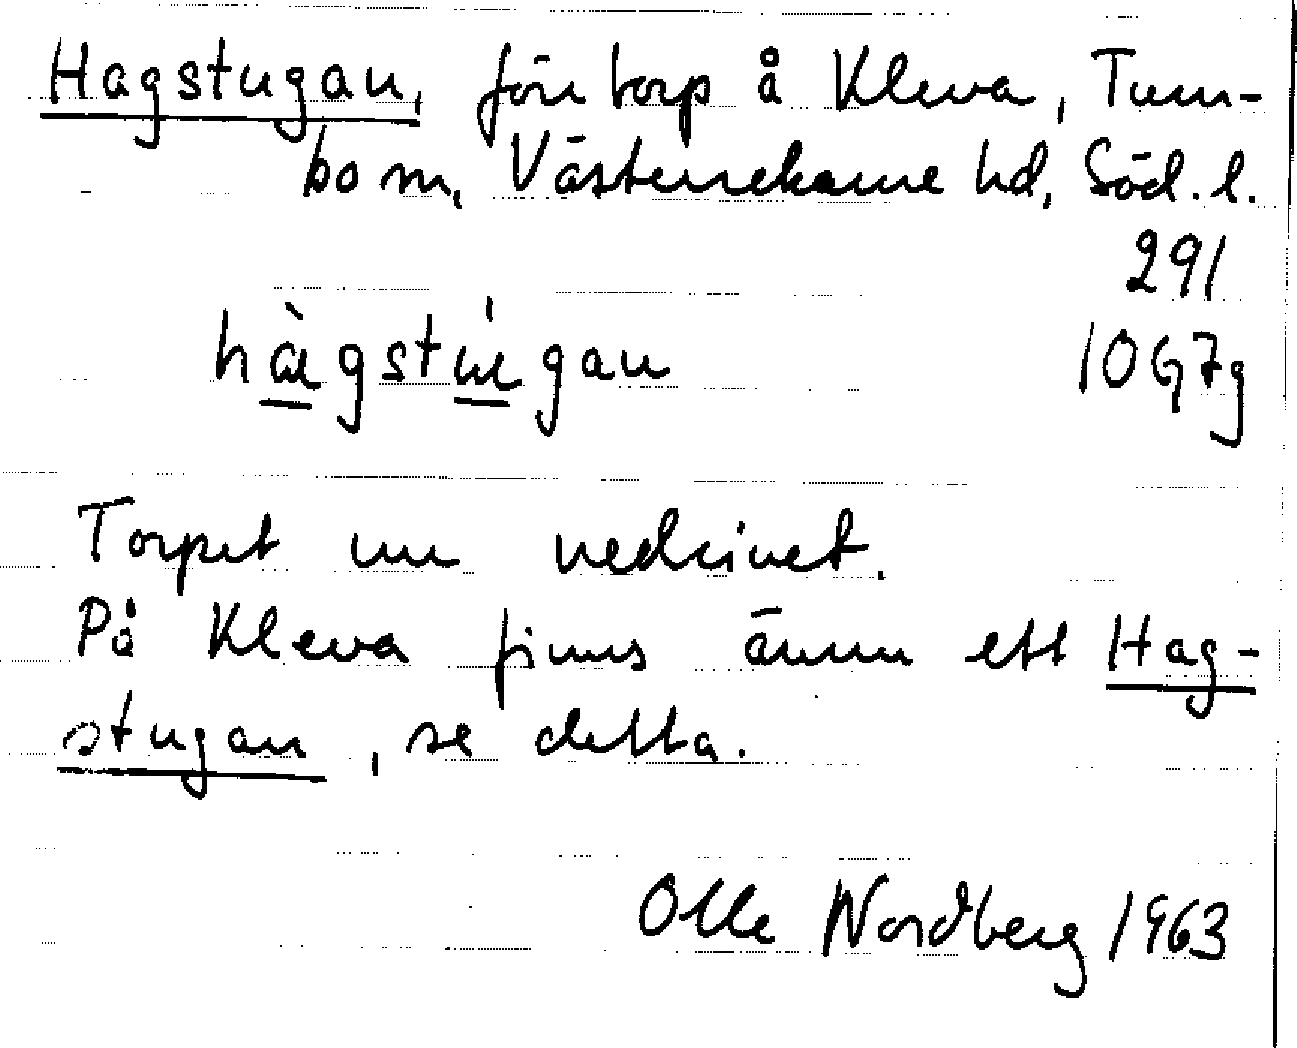 Hagstugan, förr torp å Kleva, Tum-
bo sn, Västerrekarne hd, Söd. l.
291
hàgstúgan
10G7g
Torpet nu nedrivet.
På Kleva finns ännu ett Hag-
stugan, se detta.
Olle Nordberg 1963